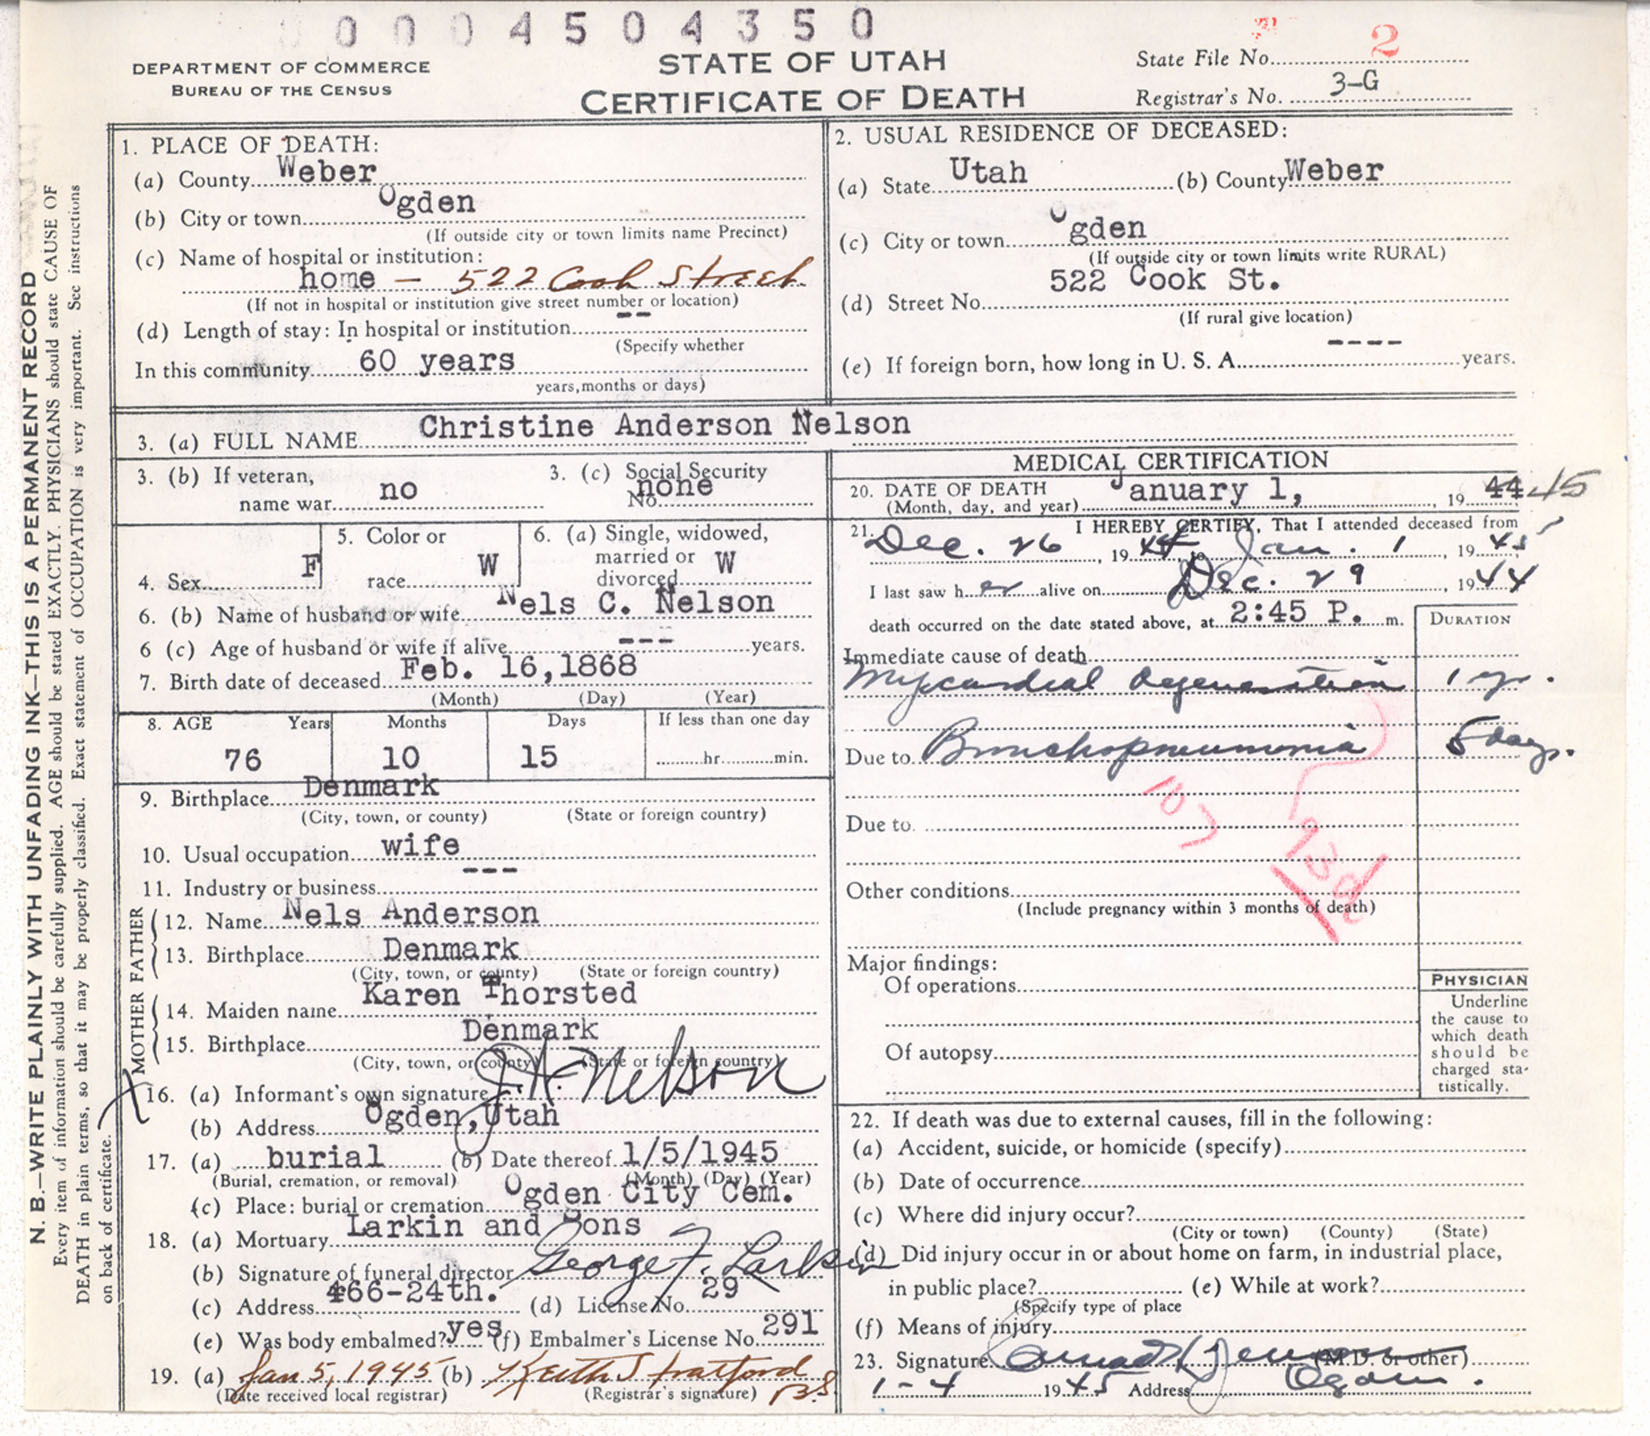 00004504350
DEPARTMENT OF COMMERCE
BUREAU OF THE CENSUS
STATE OF UTAH
CERTIFICATE OF DEATH
State File No. 2
Registrar's No. 3-G
N. B.—WRITE PLAINLY WITH UNFADING INK—THIS IS A PERMANENT RECORD
Every item of information should be carefully supplied. AGE should be stated EXACTLY. PHYSICIANS should state CAUSE OF
DEATH in plain terms, so that it may be properly classified. Exact statement of OCCUPATION is very important. See instructions
on back of certificate.
1. PLACE OF DEATH:
(a) County Weber
(b) City or town Ogden
(If outside city or town limits name Precinct)
(c) Name of hospital or institution:
home — 522 Cook Street
(If not in hospital or institution give street number or location)
(d) Length of stay: In hospital or institution --
(Specify whether
In this community 60 years
years, months or days)
2. USUAL RESIDENCE OF DECEASED:
(a) State Utah (b) County Weber
(c) City or town Ogden
(If outside city or town limits write RURAL)
(d) Street No. 522 Cook St.
(If rural give location)
(e) If foreign born, how long in U. S. A. ---- years.
3. (a) FULL NAME Christine Anderson Nelson
3. (b) If veteran, name war no
3. (c) Social Security No. none
4. Sex F
5. Color or race W
6. (a) Single, widowed, married or divorced W
6. (b) Name of husband or wife Nels C. Nelson
6 (c) Age of husband or wife if alive --- years.
7. Birth date of deceased Feb. 16,1868
(Month) (Day) (Year)
8. AGE Years Months Days If less than one day
76 10 15 hr. min.
9. Birthplace Denmark
(City, town, or county) (State or foreign country)
10. Usual occupation wife
11. Industry or business ---
FATHER
12. Name Nels Anderson
13. Birthplace Denmark
(City, town, or county) (State or foreign country)
MOTHER
14. Maiden name Karen Thorsted
15. Birthplace Denmark
(City, town, or county) (State or foreign country)
X
16. (a) Informant's own signature J. H. Nelson
(b) Address Ogden, Utah
17. (a) burial (b) Date thereof 1/5/1945
(Burial, cremation, or removal) (Month) (Day) (Year)
(c) Place: burial or cremation Ogden City Cem.
18. (a) Mortuary Larkin and Sons
(b) Signature of funeral director George F. Larkin
(c) Address 466-24th. (d) License No. 29
(e) Was body embalmed? yes (f) Embalmer's License No. 291
19. (a) Jan 5, 1945 (b) Keith Stratford
(Date received local registrar) (Registrar's signature)
MEDICAL CERTIFICATION
20. DATE OF DEATH January 1, 19 44 45
(Month, day, and year)
21. I HEREBY CERTIFY, That I attended deceased from
Dec. 26, 1944 to Jan. 1, 1945
I last saw her alive on Dec. 29 1944
death occurred on the date stated above, at 2:45 P. m.
DURATION
Immediate cause of death
Myocardial degeneration 1 yr.
Due to Bronchopneumonia 5 days.
107
93d
Due to
Other conditions
(Include pregnancy within 3 months of death)
Major findings:
Of operations
Of autopsy
PHYSICIAN
Underline
the cause to
which death
should be
charged sta-
tistically.
22. If death was due to external causes, fill in the following:
(a) Accident, suicide, or homicide (specify)
(b) Date of occurrence
(c) Where did injury occur?
(City or town) (County) (State)
(d) Did injury occur in or about home on farm, in industrial place,
in public place? (e) While at work?
(Specify type of place
(f) Means of injury
23. Signature (M.D. or other)
1-4 1945 Address Ogden.